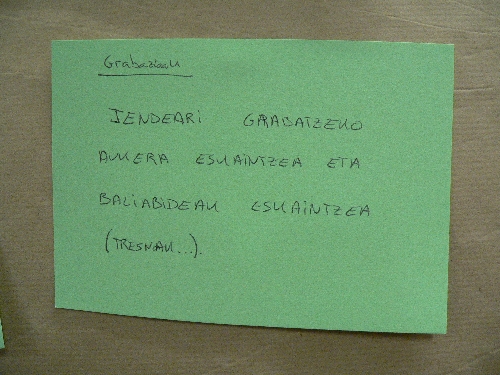 Grabazioak
JENDEARI GRABATZEKO
AUKERA ESKAINTZEA ETA
BALIABIDEAK ESKAINTZEA
(TRESNAK...).